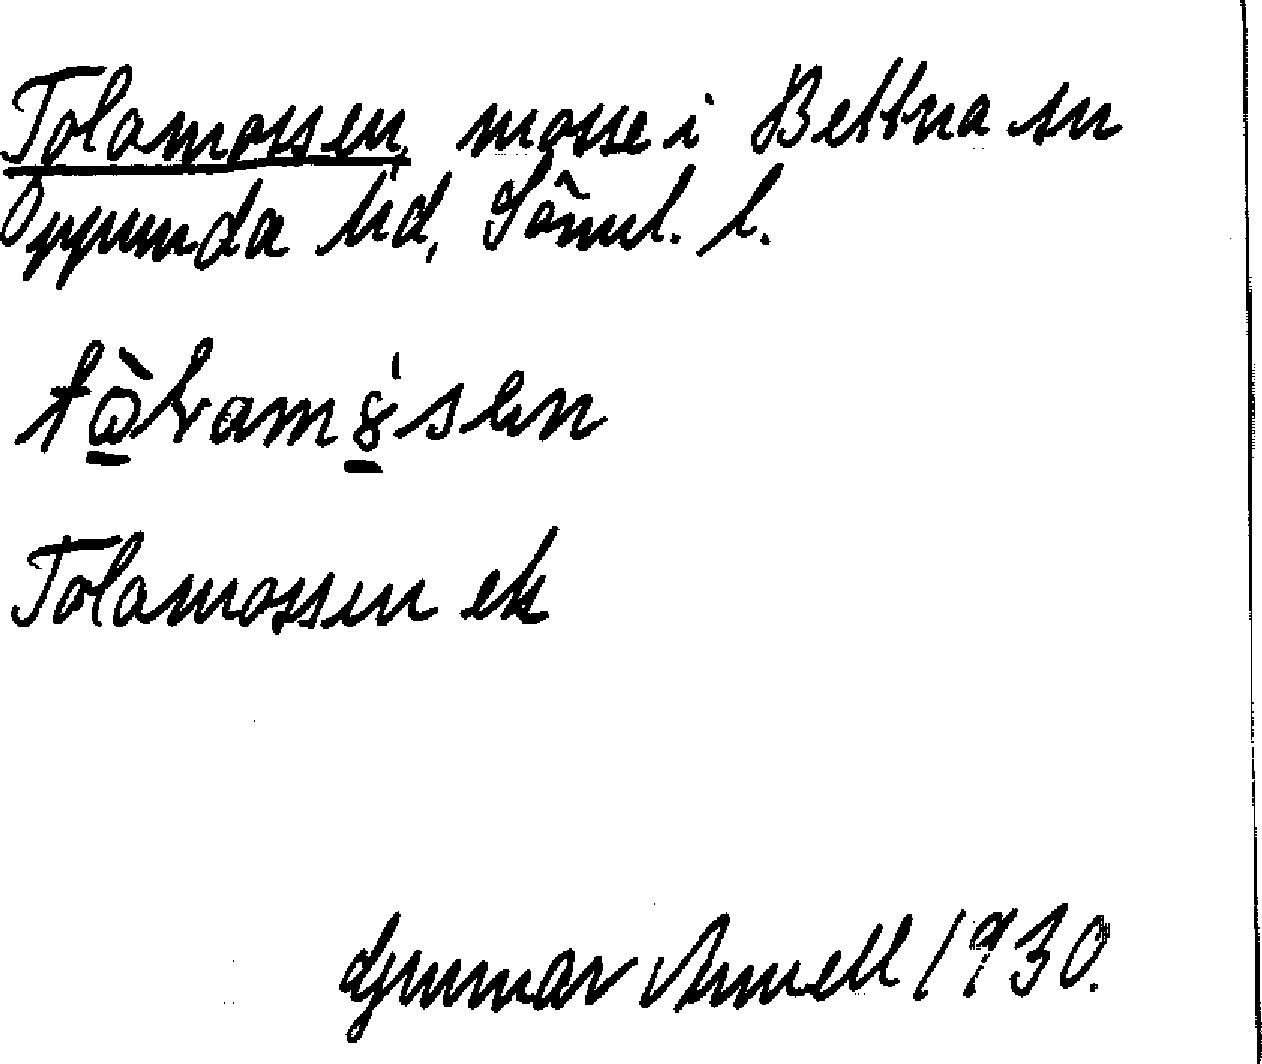 Tolamossen, mosse i Bettna sn
Oppunda hd, Söml. l.
Tolamossen ek
Gunnar Amell 1930.